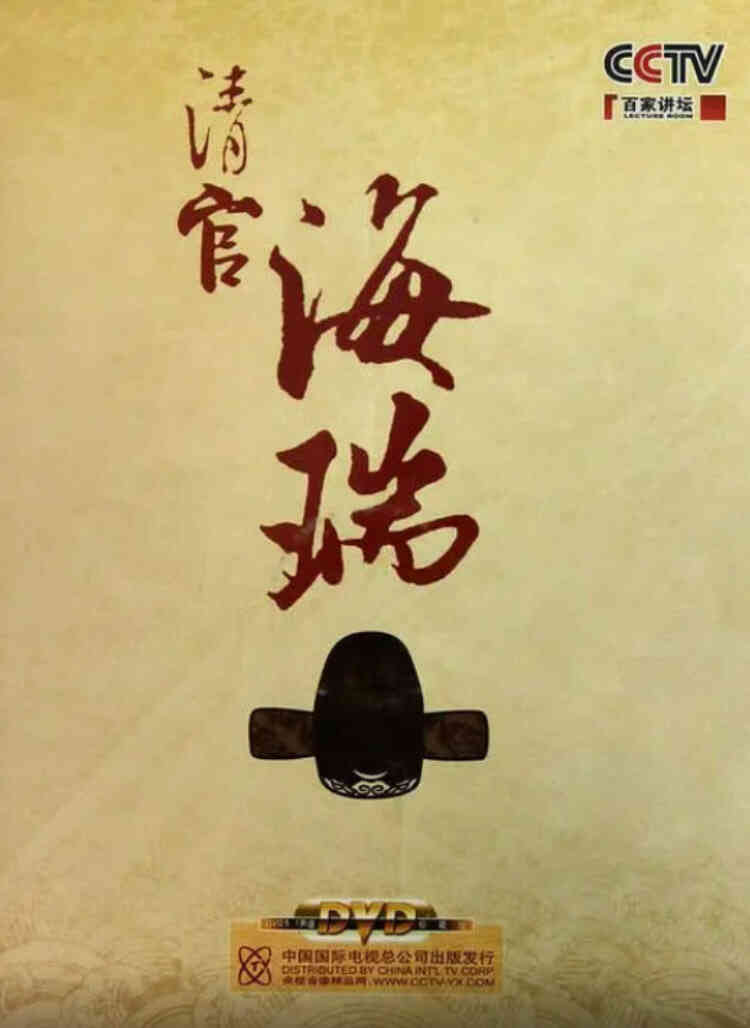 清官
海瑞
CCTV
百家讲坛
LECTURE ROOM
DVD
中国国际电视总公司出版发行
DISTRIBUTED BY CHINA INT'L TV CORP.
央视音像精品网:WWW.CCTV-YX.COM